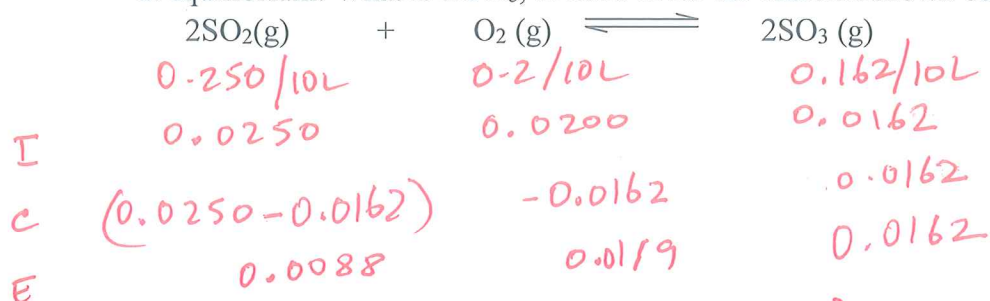 2SO₂(g) + O₂ (g) ⇌ 2SO₃ (g)
0.250/10L 0-2/10L 0.162/10L
I 0.0250 0.0200 0.0162
C (0.0250-0.0162) -0.0162 0.0162
E 0.0088 0.0119 0.0162